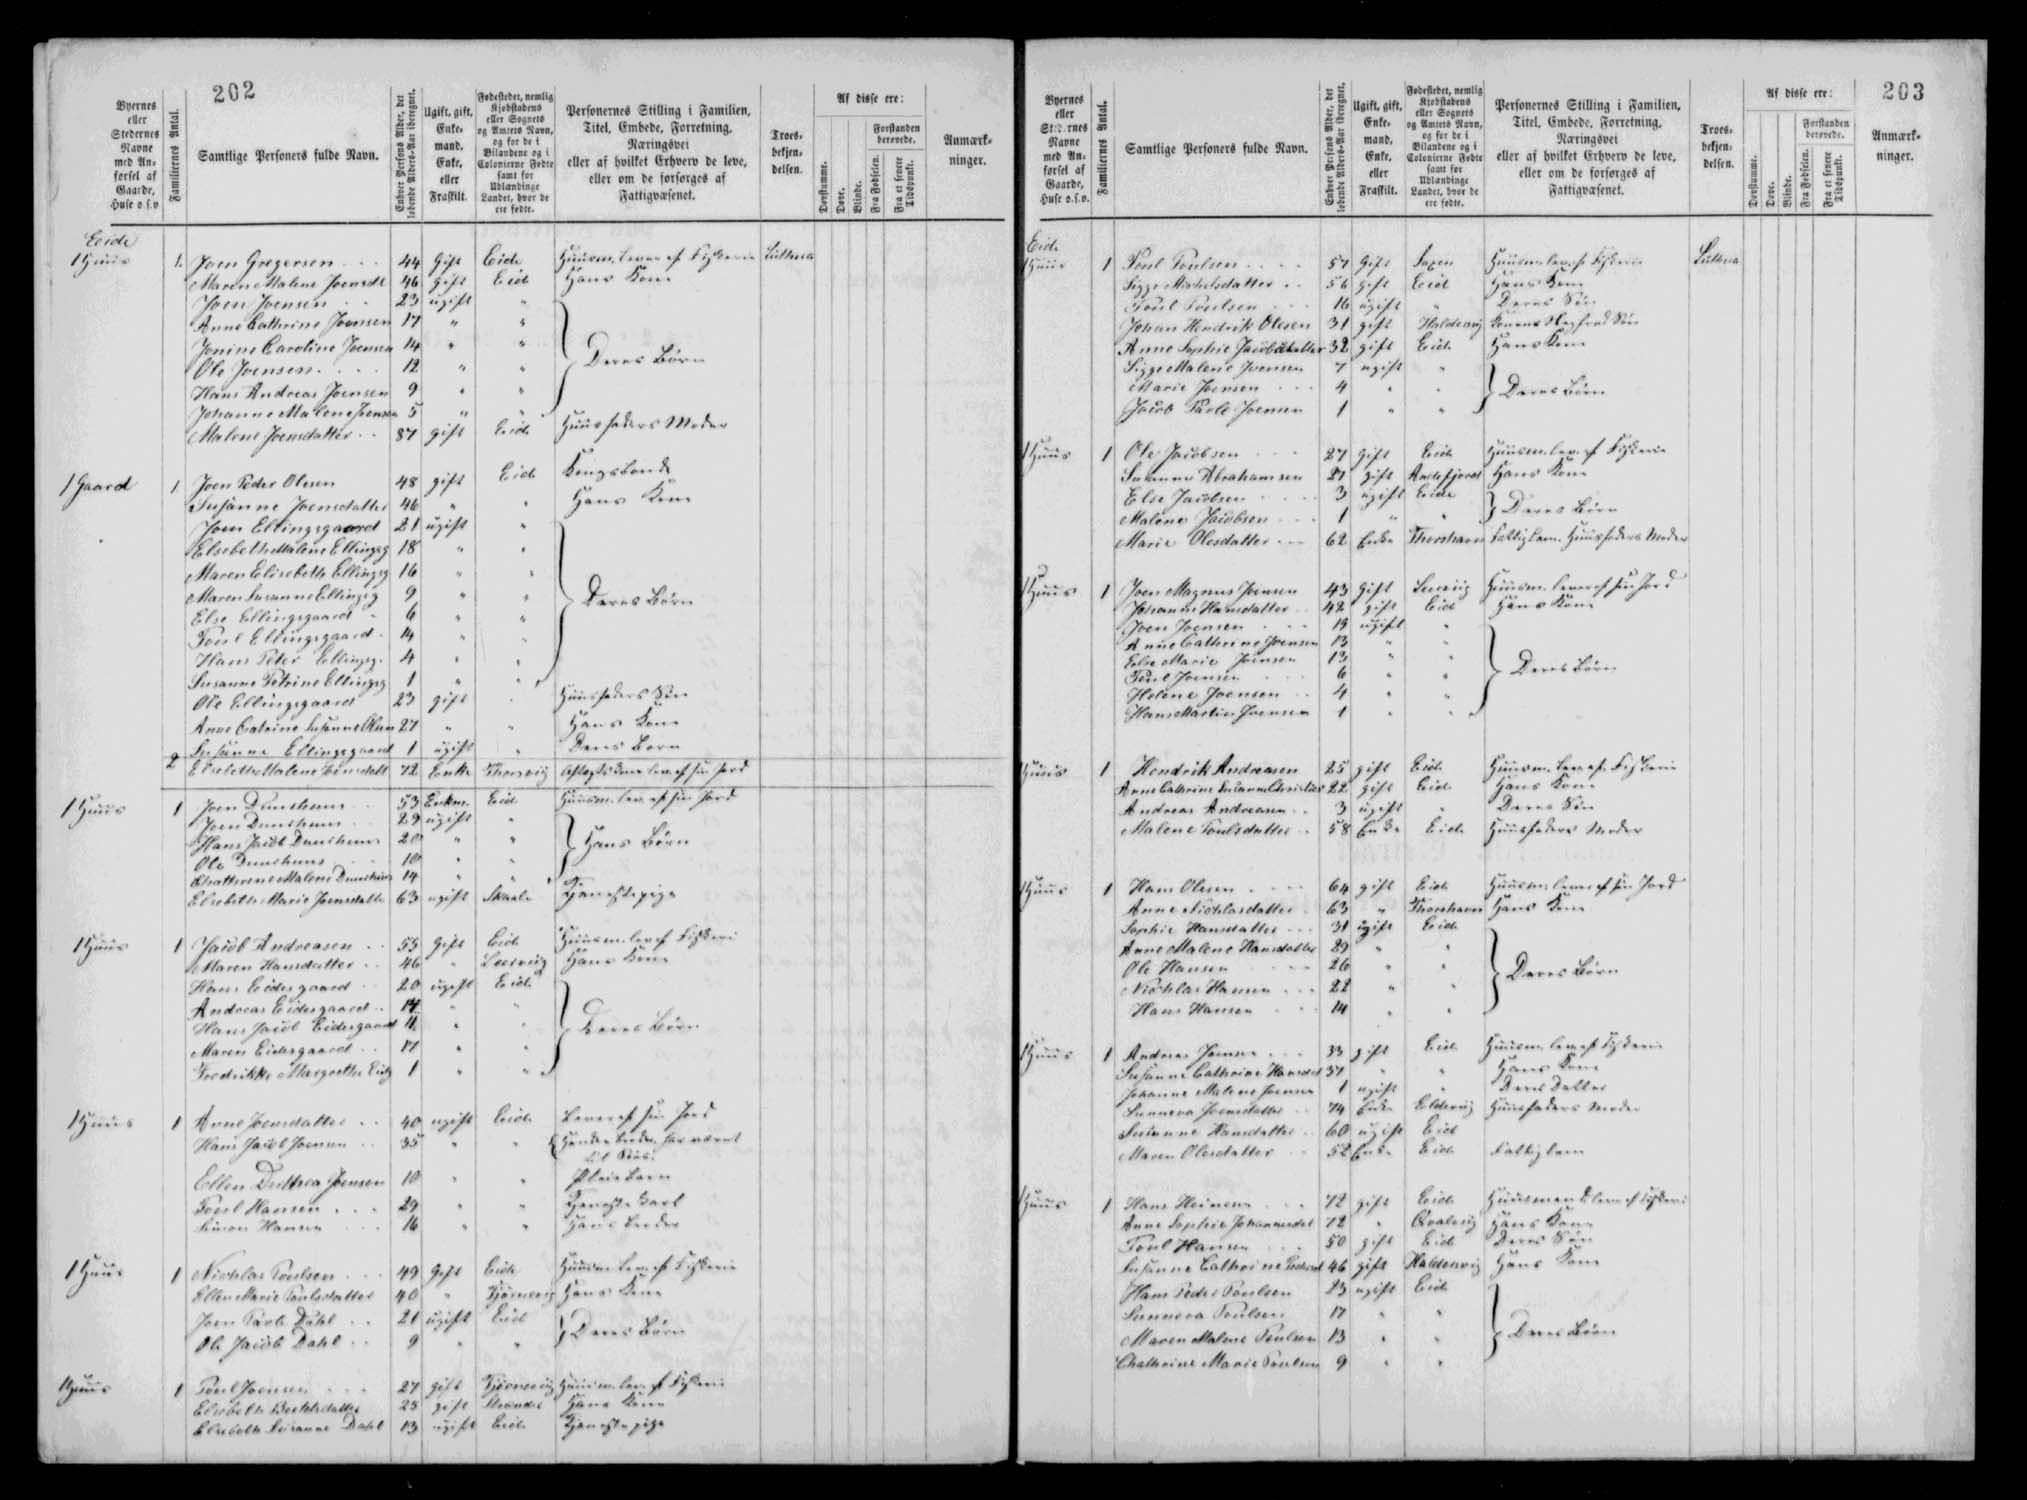 202
Byernes eller Stedernes Navne med Anførsel af Gaarde, Huse o.s.v.
Familiernes Antal.
Samtlige Personers fulde Navn.
Enhver Persons Alder, det løbende Alders-Aar iberegnet.
Ugift, gift, Enkemand, Enke, eller Fraskilt.
Fødestedet, nemlig Kjøbstadens eller Sognets og Amtets Navn, og for de i Bilandene og i Colonierne Fødte samt for Udlændinge Landet, hvor de ere fødte.
Personernes Stilling i Familien, Titel, Embede, Forretning, Næringsvei eller af hvilket Erhverv de leve, eller om de forsørges af Fattigvæsenet.
Troesbekjendelsen.
Af disse ere:
Døvstumme.
Døve.
Blinde.
Forstanden berøvede.
Fra Fødselen.
Fra et senere Tidspunkt.
Anmærkninger.
Eide
1 Huus 1. Joen Gregersen 44 Gift Eide Huusm. lever af Fiskerie Luthersk
Maren Malene Joensdt 46 gift Eide Hans Kone
Joen Joensen 23 ugift "
Anne Cathrine Joensen 17 " "
Jonine Caroline Joensen 14 " " Deres Børn
Ole Joensen 12 " "
Hans Andreas Joensen 9 " "
Johanne Malene Joensen 5 " "
Malene Joensdatter 87 gift Eide Huusfaders Moder
1 Gaard 1. Joen Peder Olesen 48 gift Eide Kongsbonde
Susanne Joensdatter 46 " " Hans Kone
Joen Ellingsgaard 21 ugift "
Elsebeth Malene Ellingsg 18 " "
Maren Elisebeth Ellingsg 16 " "
Maren Susanne Ellingsg 9 " " Deres Børn
Else Ellingsgaard 6 " "
Poul Ellingsgaard 14 " "
Hans Peter Ellingsg. 4 " "
Susanne Petrine Ellingsg 1 " "
Ole Ellingsgaard 23 gift " Huusfaders Søn
Anne Catrine Susanne Olsen 27 " " Hans Kone
Susanne Ellingsgaard 1 ugift " Deres Barn
2 Elsebeth Malene Joensdatt 72 Enke Thorsvig lev. af sin Jord
1 Huus 1 Joen Dunshuus 53 Enkm. Eide Huusm. lev. af sin Jord
Joen Dunshuus 29 ugift "
Hans Jacob Dunshuus 20 " " Hans Børn
Ole Dunshuus 10 " "
Chathrine Malene Dunshuus 14 " "
Elsebeth Marie Joensdatter 63 ugift Skaale Tjenestepige
1 Huus 1 Jacob Andreasen 53 gift Eide Huusm. lev af Fiskeri
Maren Hansdatter 46 " Leervig Hans Kone
Hans Eidesgaard 20 ugift Eide
Andreas Eidesgaard 14 " "
Hans Jacob Eidesgaard 11 " " Deres Børn
Maren Eidesgaard 17 " "
Fredrikke Margrethe Eidg 1 " "
1 Huus 1 Anne Joensdatter 40 ugift Eide Lever af sin Jord
Hans Jacob Joensen 35 " "
Ellen Dorthea Joensen 10 " " Pleie Barn
Poul Hansen 29 " " Tjeneste Karl
Simon Hansen 16 " " Hans Broder
1 Huus 1 Nichlas Poulsen 49 Gift Eide Huusm lev af Fiskerie
Ellen Marie Poulsdatter 40 " Tjørnevig Hans Kone
Joen Pavle Dahl 21 ugift Eide Deres Børn
Ole Jacob Dahl 9 " "
1 Huus 1 Poul Joensen 27 gift Tjørnevig Huusm. lev. af Fiskerie
Elsebeth 25 gift Hans Kone
Elsebeth Susanne Dahl 13 ugift Eide Tjenestepige
203
Byernes eller Stedernes Navne med Anførsel af Gaarde, Huse o.s.v.
Familiernes Antal.
Samtlige Personers fulde Navn.
Enhver Persons Alder, det løbende Alders-Aar iberegnet.
Ugift, gift, Enkemand, Enke, eller Fraskilt.
Fødestedet, nemlig Kjøbstadens eller Sognets og Amtets Navn, og for de i Bilandene og i Colonierne Fødte samt for Udlændinge Landet, hvor de ere fødte.
Personernes Stilling i Familien, Titel, Embede, Forretning, Næringsvei eller af hvilket Erhverv de leve, eller om de forsørges af Fattigvæsenet.
Troesbekjendelsen.
Af disse ere:
Døvstumme.
Døve.
Blinde.
Forstanden berøvede.
Fra Fødselen.
Fra et senere Tidspunkt.
Anmærkninger.
Eide
1 Huus 1 Poul Poulsen 57 Gift Saxen Huusm. lev. af Fiskerie Luthersk
Sigge Michelsdatter 56 gift Eide Hans Kone
Poul Poulsen 16 ugift " Deres Søn
Johan Hendrik Olesen 31 gift Haldersvig Konens Søn
Anne Sophie Jacobsdatter 32 gift Eide Hans Kone
Sigge Malene Joensen 7 ugift "
Marie Joensen 4 " " Deres Børn
Jacob Pavle Joensen 1 " "
1 Huus 1 Ole Jacobsen 27 gift Eide Huusm. lev. af Fiskerie
Susanne Abrahamsen 27 gift Andefjord Hans Kone
Else Jacobsen 3 ugift Eide Deres Børn
Malene Jacobsen 1 " "
Marie Olesdatter 62 Enke Thorshavn Fattiglem. Huusfaders Moder
1 Huus 1 Joen Magnus Joensen 43 gift Leervig Huusm. lever af sin Jord
Johanne Hansdatter 42 gift Eide Hans Kone
Joen Joensen 19 ugift "
Anne Cathrine Joensen 13 " "
Else Marie Joensen 13 " "
Poul Joensen 6 " " Deres Børn
Helene Joensen 4 " "
Hans Martin Joensen 1 " "
1 Huus 1 Hendrik Andreasen 25 gift Eide Huusm. lev. af Fiskerie
Anne Cathrine Susanne Christine 22 gift Eide Hans Kone
Andreas Andreasen 3 ugift " Deres Søn
Malene Poulsdatter 58 Enke Eide Huusfaders Moder
1 Huus 1 Hans Olesen 64 gift Eide Huusm. lever af sin Jord
Anne Nichlasdatter 63 " Thorshavn Hans Kone
Sophie Hansdatter 31 ugift Eide
Anne Malene Hansdatter 29 " "
Ole Hansen 26 " " Deres Børn
Nichlas Hansen 22 " "
Hans Hansen 14 " "
1 Huus 1 Andreas Joensen 33 gift Eide Huusm. lev. af Fiskerie
Susanne Cathrine Hansdat 37 " " Hans Kone
Johanne Malene Joensen 1 ugift " Deres Datter
Sunneva Joensdatter 74 Enke Eldevig Huusfaders Moder
Susanne Hansdatter 60 ugift Eide
Maren Olesdatter 52 Enke Eide Fattiglem
1 Huus 1 Hans Heinesen 72 gift Eide Huusmand lev. af Fiskeri
Anne Sophie Johannesdat 72 " Qvalvig Hans Kone
Poul Hansen 50 gift Eide Deres Søn
Susanne Cathrine 46 gift Haldersvig Hans Kone
Hans Peder Poulsen 23 ugift Eide
Sunneva Poulsen 17 " "
Maren Malene Poulsen 13 " " Deres Børn
Chathrine Marie Poulsen 9 " "